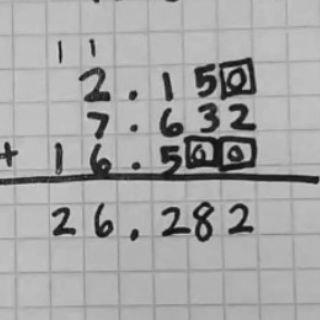 1 1
2.150
7.632
+ 16.500
26.282